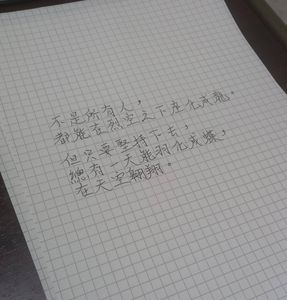 不是所有人，
都能在烈空之下座化成龍。
但只要堅持下去，
總有一天能羽化成蝶，
在天空翱翔。